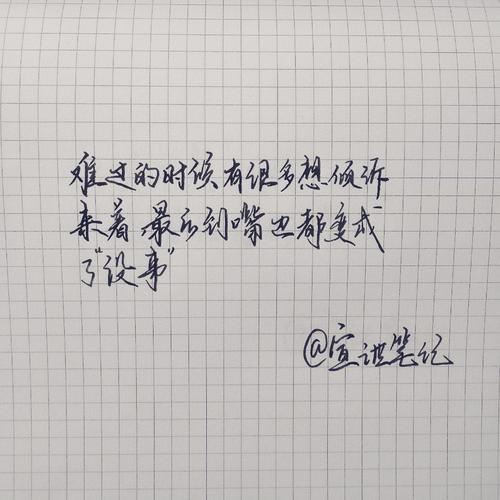 难过的时候有很多想倾诉
来着,最后到嘴边都变成
了“没事”
@宣讲笔记